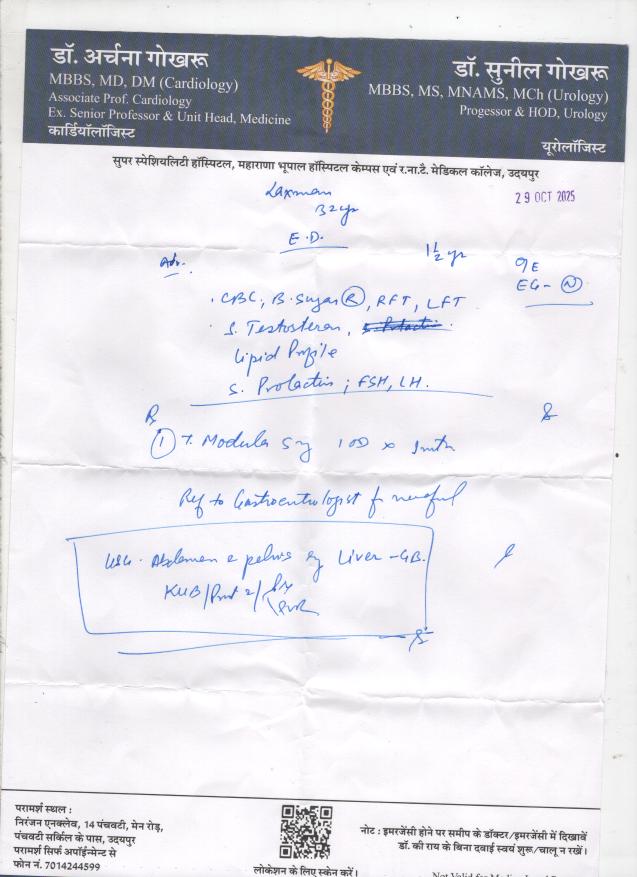 डॉ. अर्चना गोखरू
MBBS, MD, DM (Cardiology)
Associate Prof. Cardiology
Ex. Senior Professor & Unit Head, Medicine
कार्डियॉलॉजिस्ट
डॉ. सुनील गोखरू
MBBS, MS, MNAMS, MCh (Urology)
Progessor & HOD, Urology
यूरोलॉजिस्ट
सुपर स्पेशियलिटी हॉस्पिटल, महाराणा भूपाल हॉस्पिटल केम्पस एवं र.ना.टै. मेडिकल कॉलेज, उदयपुर
Laxman
29 OCT 2025
32 yr
E.D.
1½ yr
Adv.
EG - N
. CBC, B. Sugar R, RFT, LFT
. S. Testosteron,
Lipid Profile
S. Prolactin ; FSH, LH.
R
1 T. Modula 5 mg 1 OD x
Ref to Gastroentrologist
USG. Abdomen & pelvis Liver - GB.
KUB/
PVR
परामर्श स्थल :
निरंजन एनक्लेव, 14 पंचवटी, मेन रोड़,
पंचवटी सर्किल के पास, उदयपुर
परामर्श सिर्फ अपॉईन्मेन्ट से
फोन नं. 7014244599
लोकेशन के लिए स्केन करें।
नोट : इमरजेंसी होने पर समीप के डॉक्टर/इमरजेंसी में दिखावें
डॉ. की राय के बिना दवाई स्वयं शुरू/चालू न रखें।